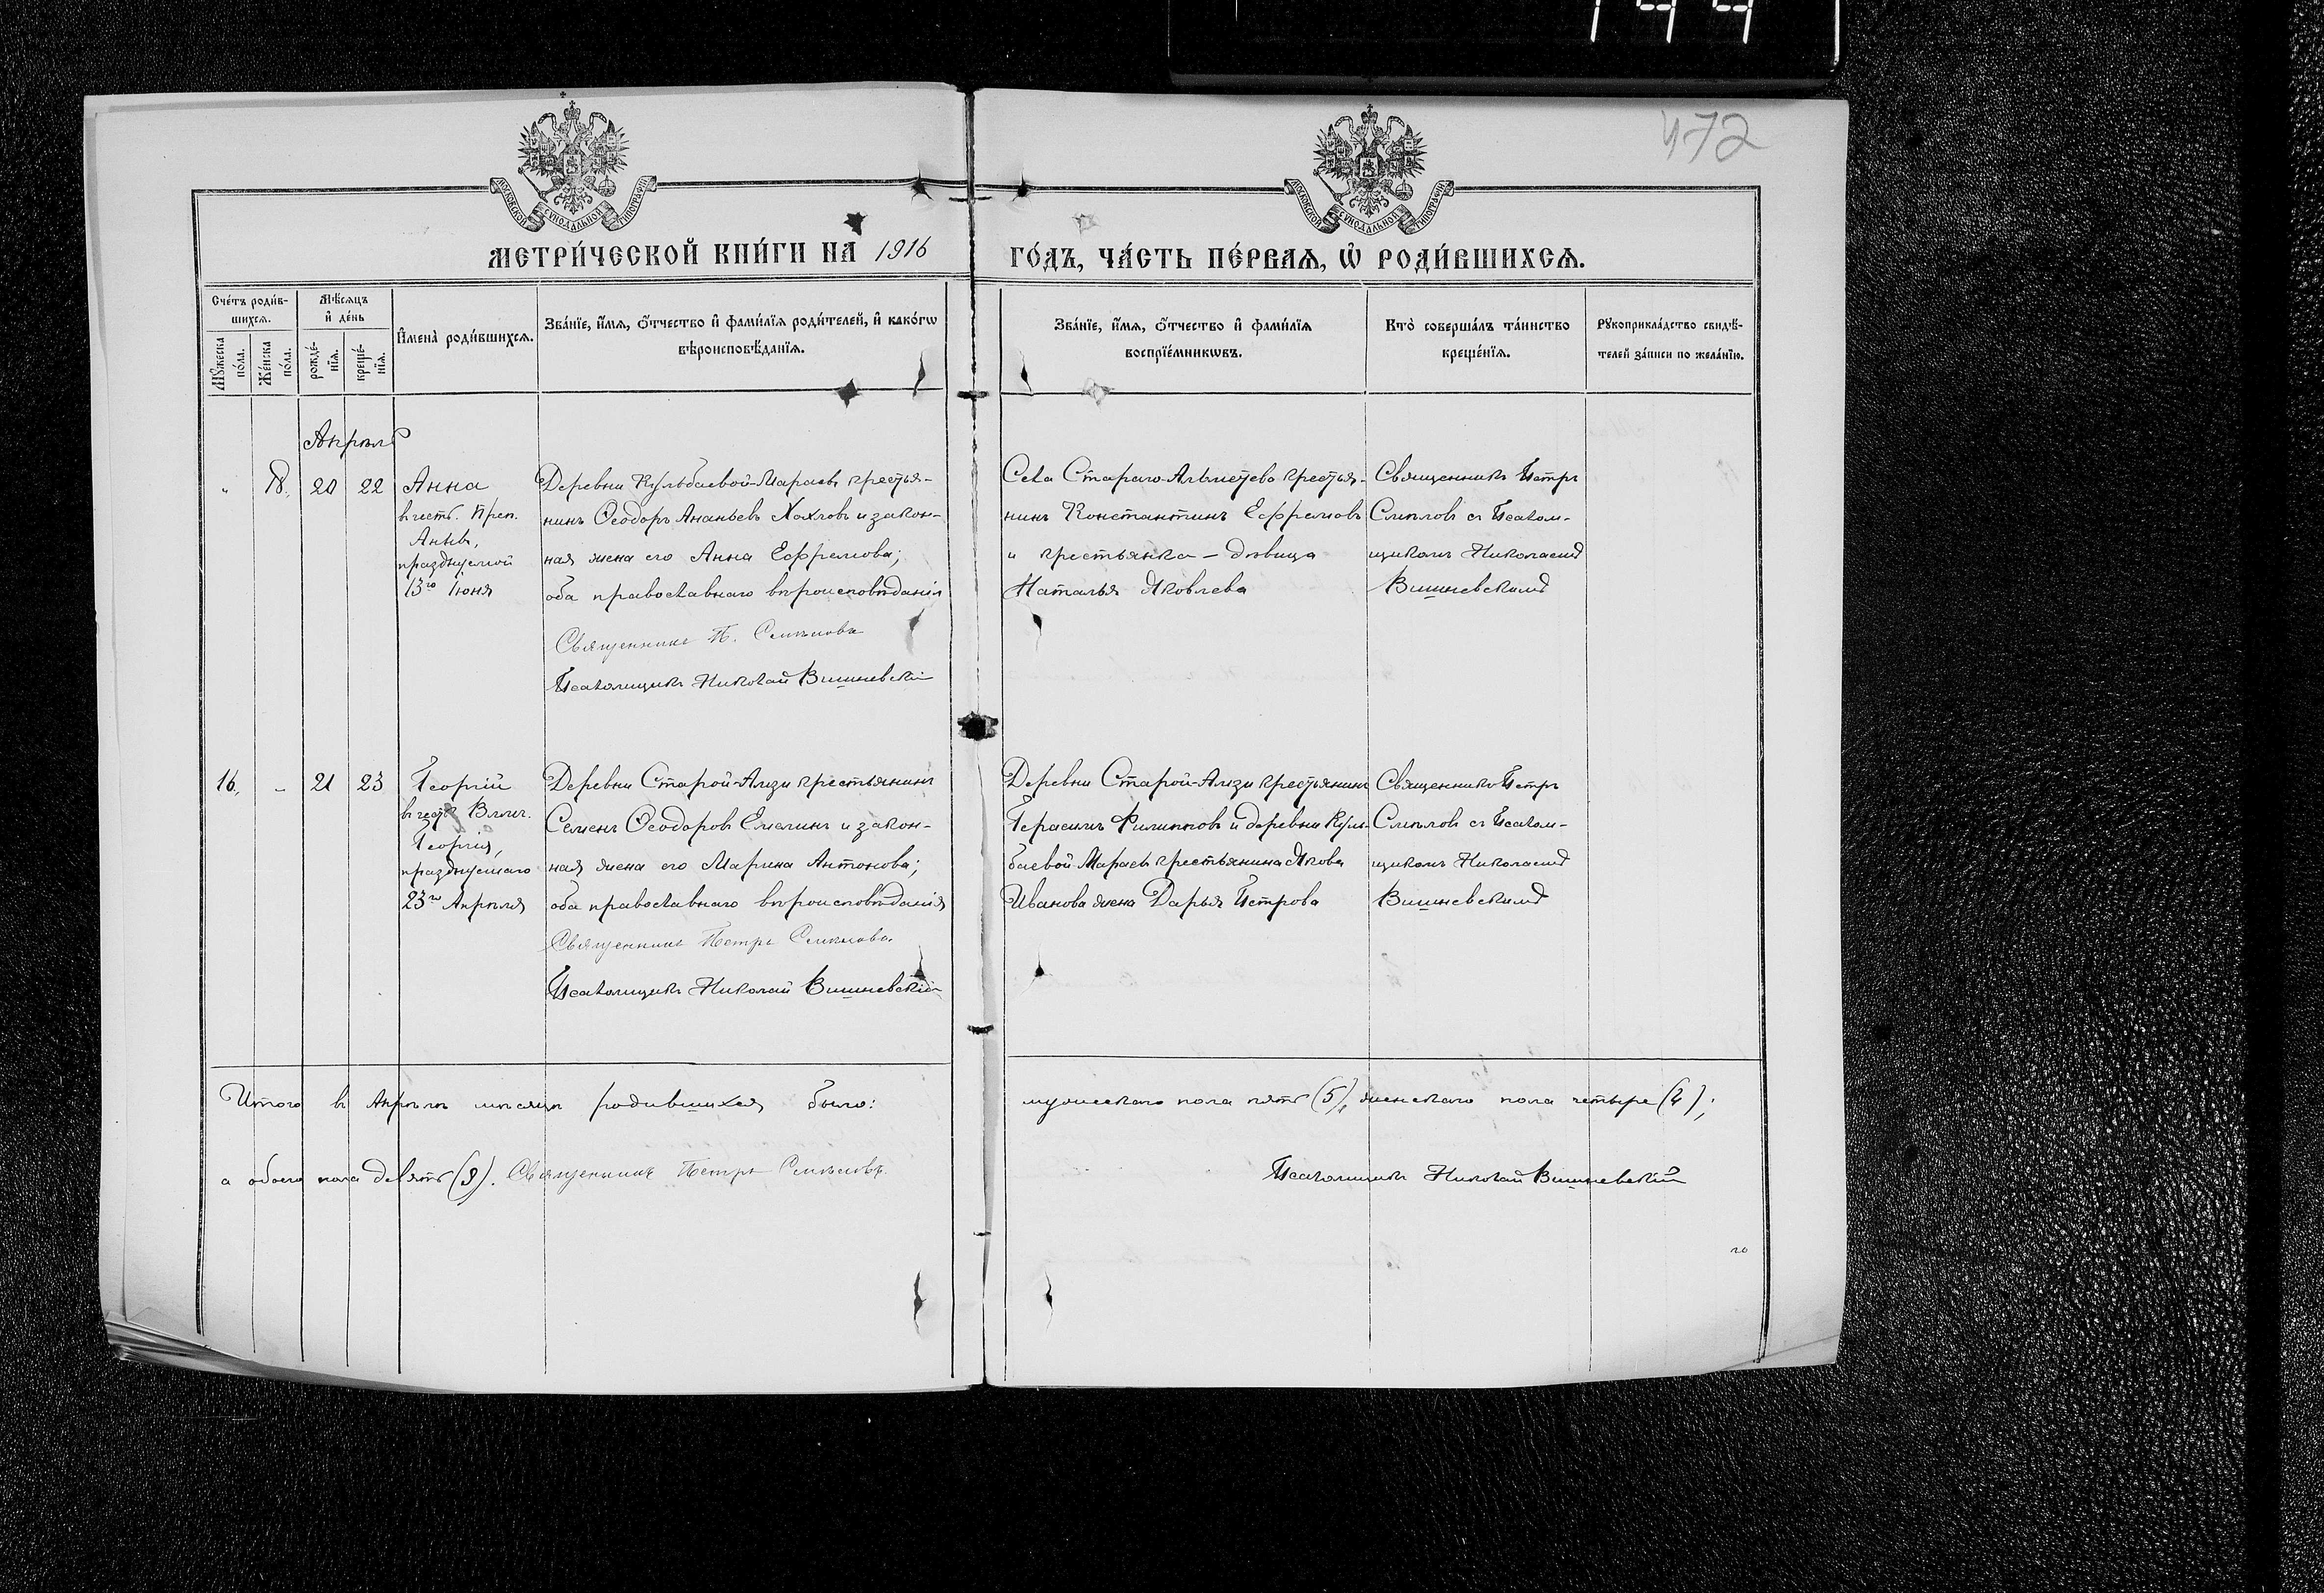 144
472
МОСКОВСКОЙ СУНОДАЛЬНОЙ ТИПОГРАФІИ
МОСКОВСКОЙ СУНОДАЛЬНОЙ ТИПОГРАФІИ
МЕТРИ́ЧЕСКОЙ КНИ́ГИ НА 1916 ГО́ДЪ, ЧА́СТЬ ПЕ́РВАЯ, Ѡ҆ РОДИ́ВШИХСѦ.
Сче́тъ роди́в-
шихсѧ.
Мѣ́сѧцъ
и҆ де́нь
Мꙋ́жеска
по́ла.
Же́нска
по́ла.
рожде́-
нїѧ.
креще́-
нїѧ.
И҆мена̀ роди́вшихсѧ.
Зва́нїе, и҆́мѧ, ѻ҆́тчество и҆ фами́лїѧ роди́телей, и҆ како́гѡ
вѣроисповѣ́данїѧ.
Зва́нїе, и҆́мѧ, ѻ҆́тчество и҆ фами́лїѧ
воспрїе́мникѡвъ.
Кто̀ соверша́лъ та́инство
креще́нїѧ.
Рꙋкоприкла́дство свидѣ́-
телей за́писи по жела́нїю.
Апрѣль
" 18. 20 22
Анна
въ честь. Преп.
Анны,
празднуемой
13го Іюня
Деревни Кульбаевой-Марасы крестья-
нинъ Ѳеодоръ Ананьевъ Хохловъ и закон-
ная жена его Анна Ефремова;
оба православнаго вѣроисповѣданія
Священникъ П. Смѣловъ
Псаломщикъ Николай Вишневскій
Села Стараго-Альметьева крестья-
нинъ Константинъ Ефремовъ
и крестьянка - дѣвица
Наталья Яковлева
Священникъ Петръ
Смѣловъ съ Псалом-
щикомъ Николаемъ
Вишневскимъ
16. - 21 23
Георгій
въ честь Влмч.
Георгія,
празднуемаго
23го Апрѣля
Деревни Старой-Амзи крестьянинъ
Семенъ Ѳеодоровъ Емелинъ и закон-
ная жена его Марина Антонова;
оба православнаго вѣроисповѣданія
Священникъ Петръ Смѣловъ.
Псаломщикъ Николай Вишневскій
Деревни Старой-Амзи крестьянинъ
Герасимъ Филипповъ и деревни Куль-
баевой-Марасы крестьянина Якова
Иванова жена Дарья Петрова
Священникъ Петръ
Смѣловъ съ Псалом-
щикомъ Николаемъ
Вишневскимъ
Итого въ Апрѣлѣ мѣсяцѣ родившихся было: мужескаго пола пять (5), женскаго пола четыре (4);
а обоего пола девять (9). Священникъ Петръ Смѣловъ. Псаломщикъ Николай Вишневскій